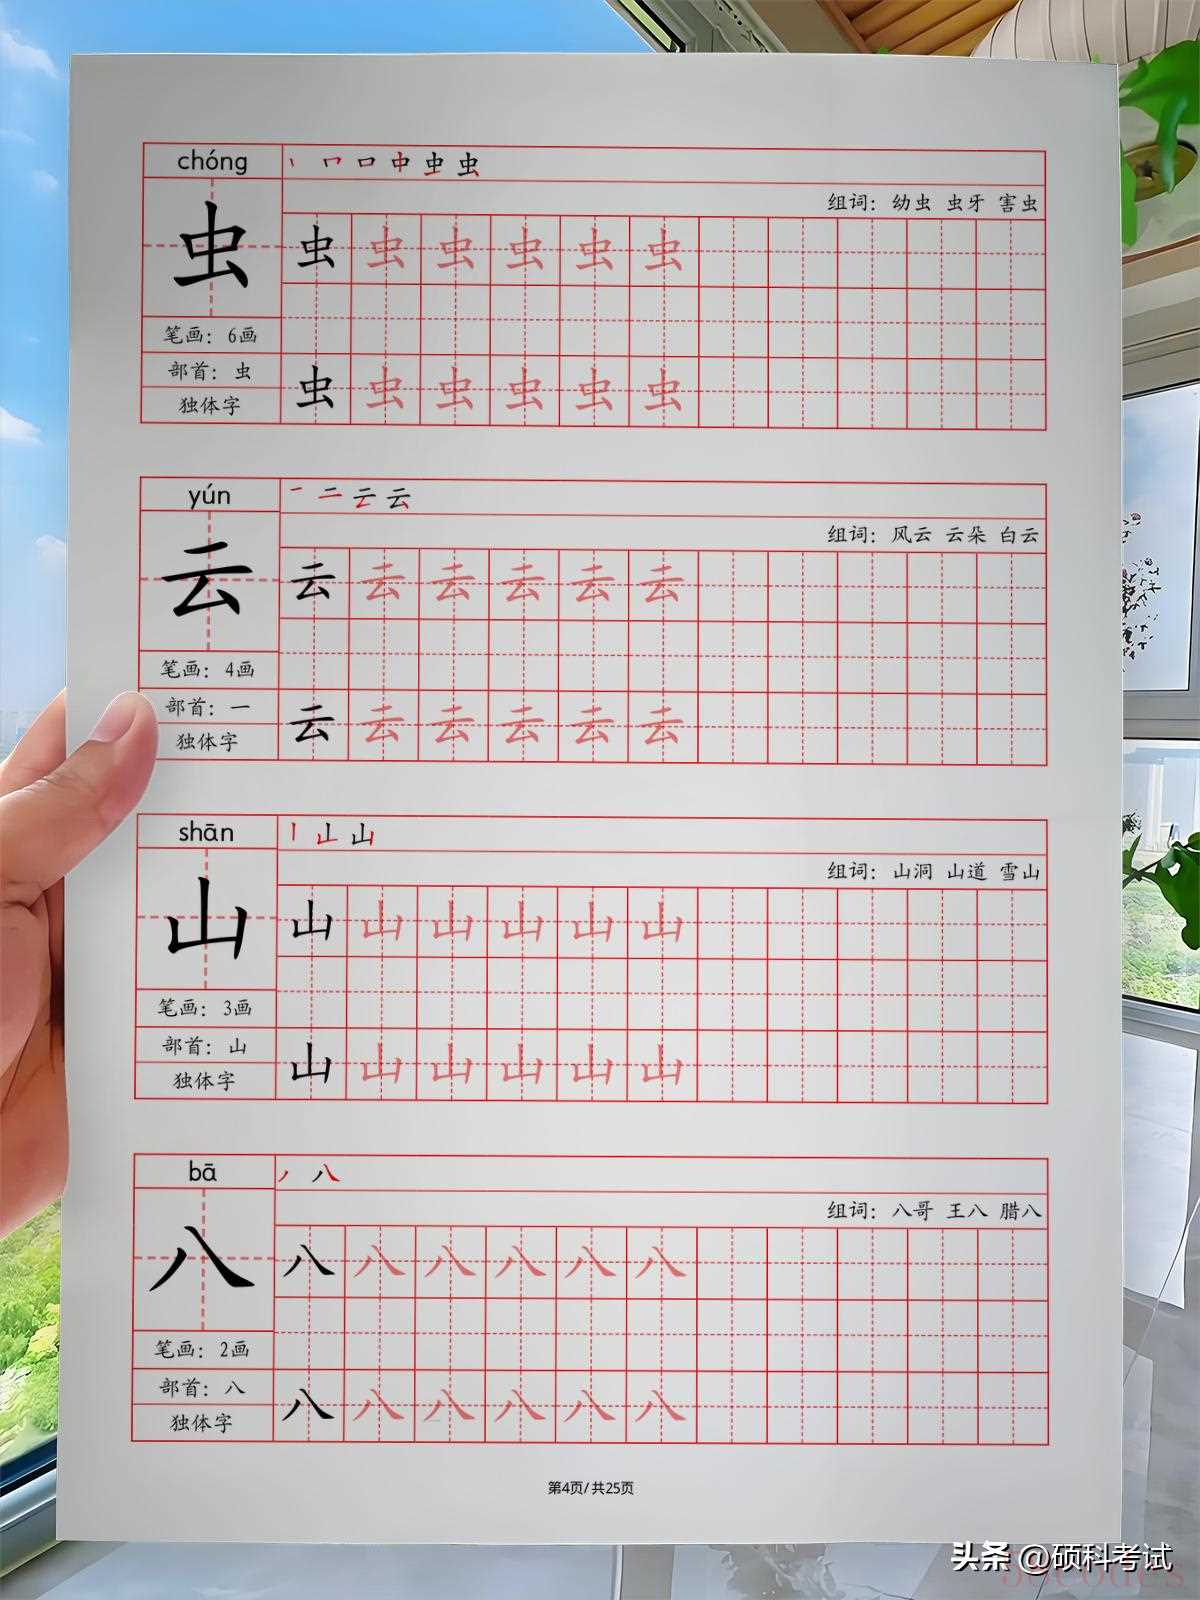 chóng
丶 冂 口 中 虫 虫
组词：幼虫 虫牙 害虫
虫
虫 虫 虫 虫 虫 虫
笔画：6画
部首：虫
独体字
虫 虫 虫 虫 虫 虫
yún
一 二 云 云
组词：风云 云朵 白云
云
云 云 云 云 云 云
笔画：4画
部首：一
独体字
云 云 云 云 云 云
shān
丨 山 山
组词：山洞 山道 雪山
山
山 山 山 山 山 山
笔画：3画
部首：山
独体字
山 山 山 山 山 山
bā
丿 八
组词：八哥 王八 腊八
八
八 八 八 八 八 八
笔画：2画
部首：八
独体字
八 八 八 八 八 八
第4页/共25页
头条 @硕科考试